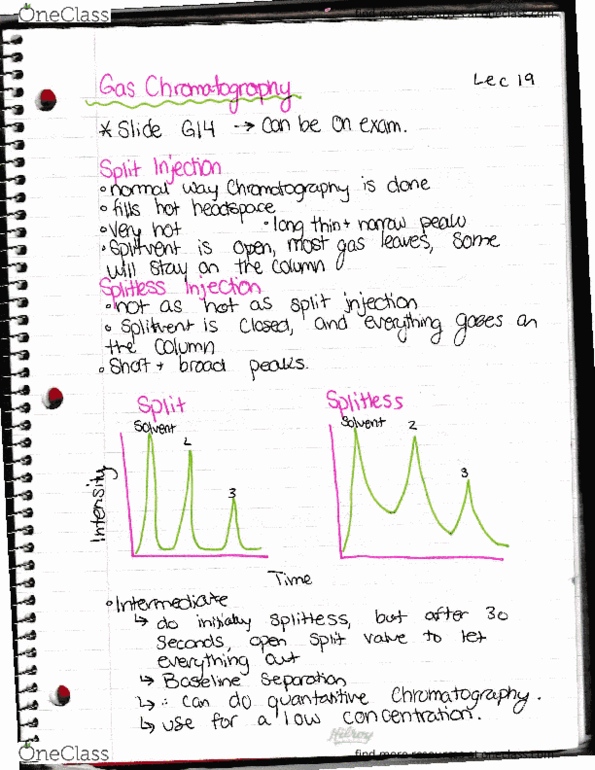 OneClass
find more resources at oneclass.com
Gas Chromatography
Lec 19
* Slide G14 → can be on exam.
Split Injection
• normal way Chromatography is done
• fills hot headspace
• Very hot • long thin + narrow peaks
• Splitvent is open, most gas leaves, some
will stay on the column
Splitless Injection
• not as hot as split injection
• Splitvent is closed, and everything goes on
the column
• Short + broad peaks.
Split
Splitless
Solvent
2
3
Solvent
2
3
Intensity
Time
• Intermediate
↳ do initially splitless, but after 30
Seconds, open split valve to let
everything out
↳ Baseline Separation
↳ ∴ can do quantantive Chromatography.
↳ use for a low concentration.
Hilroy
OneClass
find more resources at oneclass.com